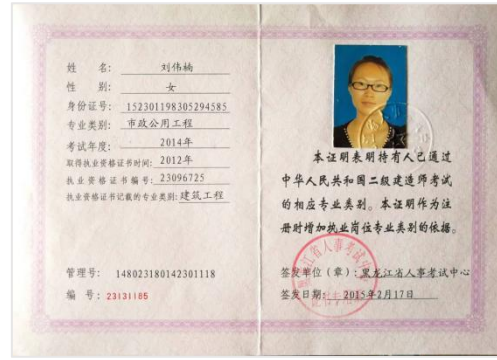 姓 名： 刘伟楠
性 别： 女
身份证号： 152301198305294585
专业类别： 市政公用工程
考试年度： 2014年
取得执业资格证书时间： 2012年
执业资格证书编号： 23096725
执业资格证书记载的专业类别： 建筑工程
管理号： 148023180142301118
编 号： 23131185
本证明表明持有人已通过
中华人民共和国二级建造师考试
的相应专业类别。本证明作为注
册时增加执业岗位专业类别的依据。
签发单位（章）：黑龙江省人事考试中心
签发日期： 2015年2月17日